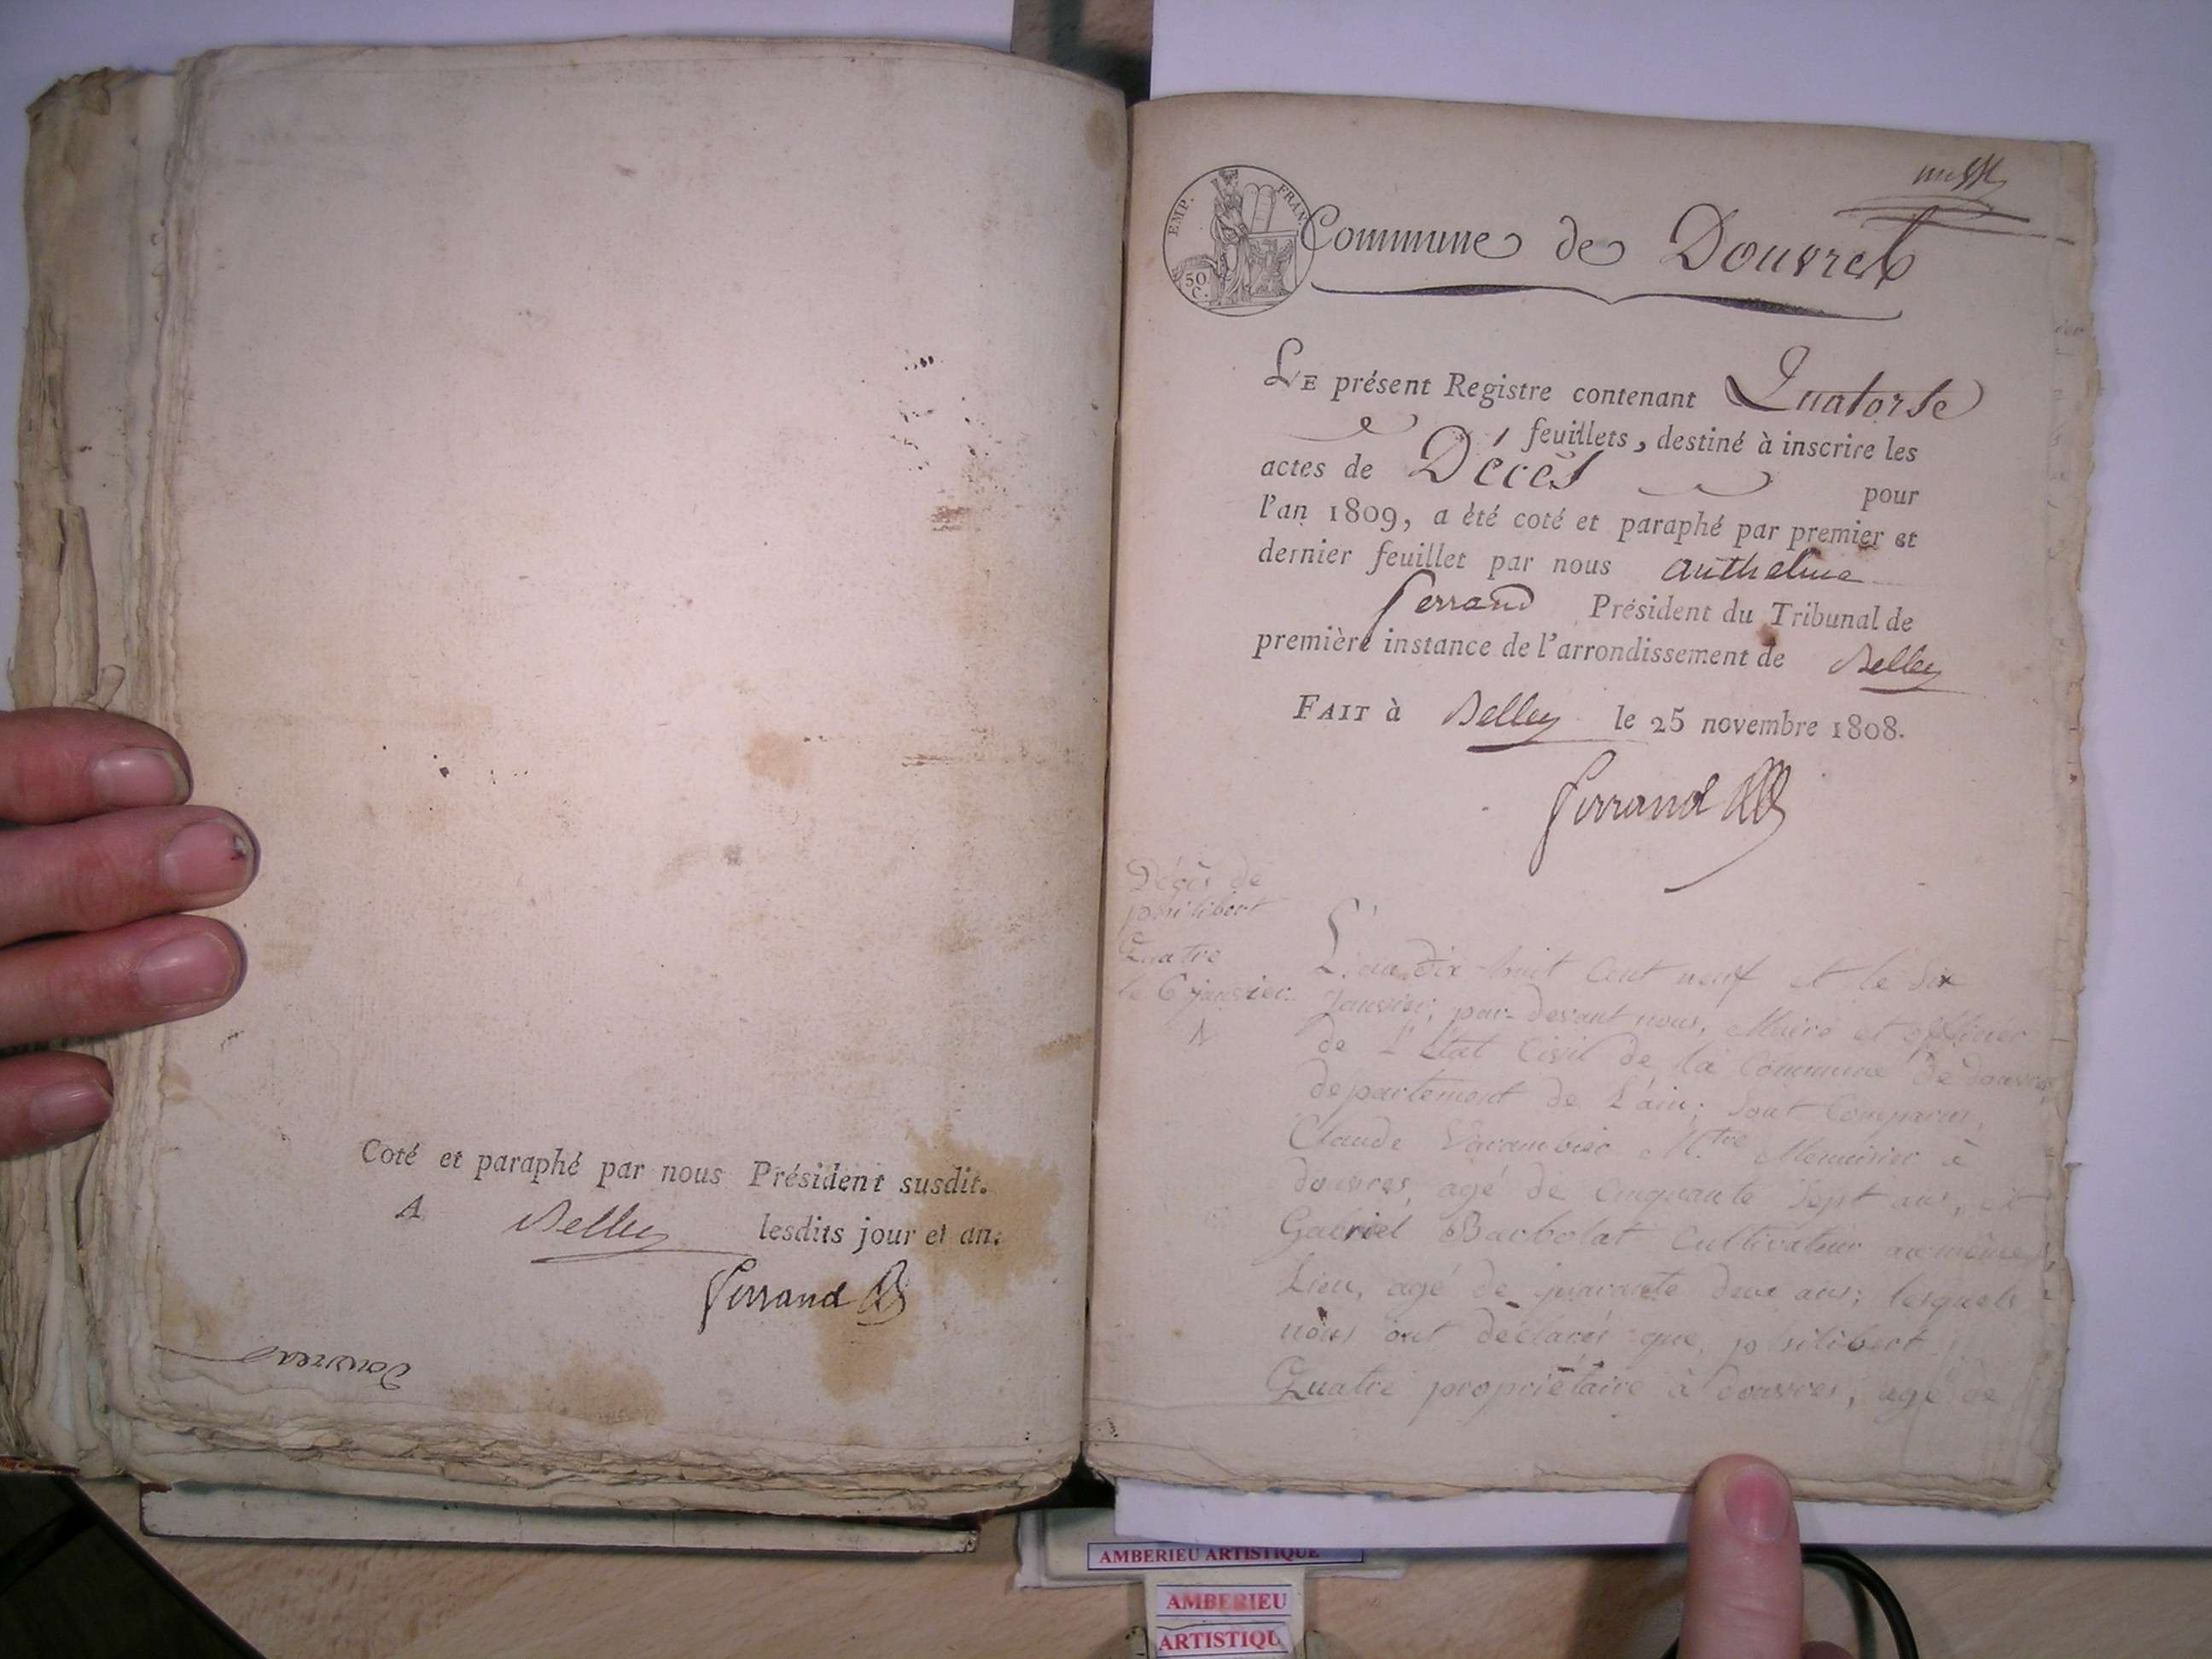 Coté et paraphé par nous Président susdit.
A Belley lesdits jour et an.
Ferrand
Douvres
EMP. FRAN.
50 C.
Commune de Douvres
LE présent Registre contenant Quatorse
feuillets, destiné à inscrire les
actes de Décès pour
l'an 1809, a été coté et paraphé par premier et
dernier feuillet par nous Anthelme
Ferrand Président du Tribunal de
première instance de l'arrondissement de Belley
FAIT à Belley le 25 novembre 1808.
Ferrand
Décès de
philibert
Quatre
le 6 janvier
1
L'an dix-huit cent neuf et le six
janvier, par-devant nous, Maire et officier
de L'état Civil de la Commune de douvres
departement de L'ain; sont Comparus,
Claude Varambier M.tre Menuisier à
douvres, agé de cinquante sept ans, et
Gabriel Barbolat Cultivateur au même
Lieu, agé de quarante deux ans; lesquels
nous ont déclaré que philibert
Quatre propriétaire à douvres, agé de
AMBERIEU ARTISTIQUE
AMBERIEU
ARTISTIQU